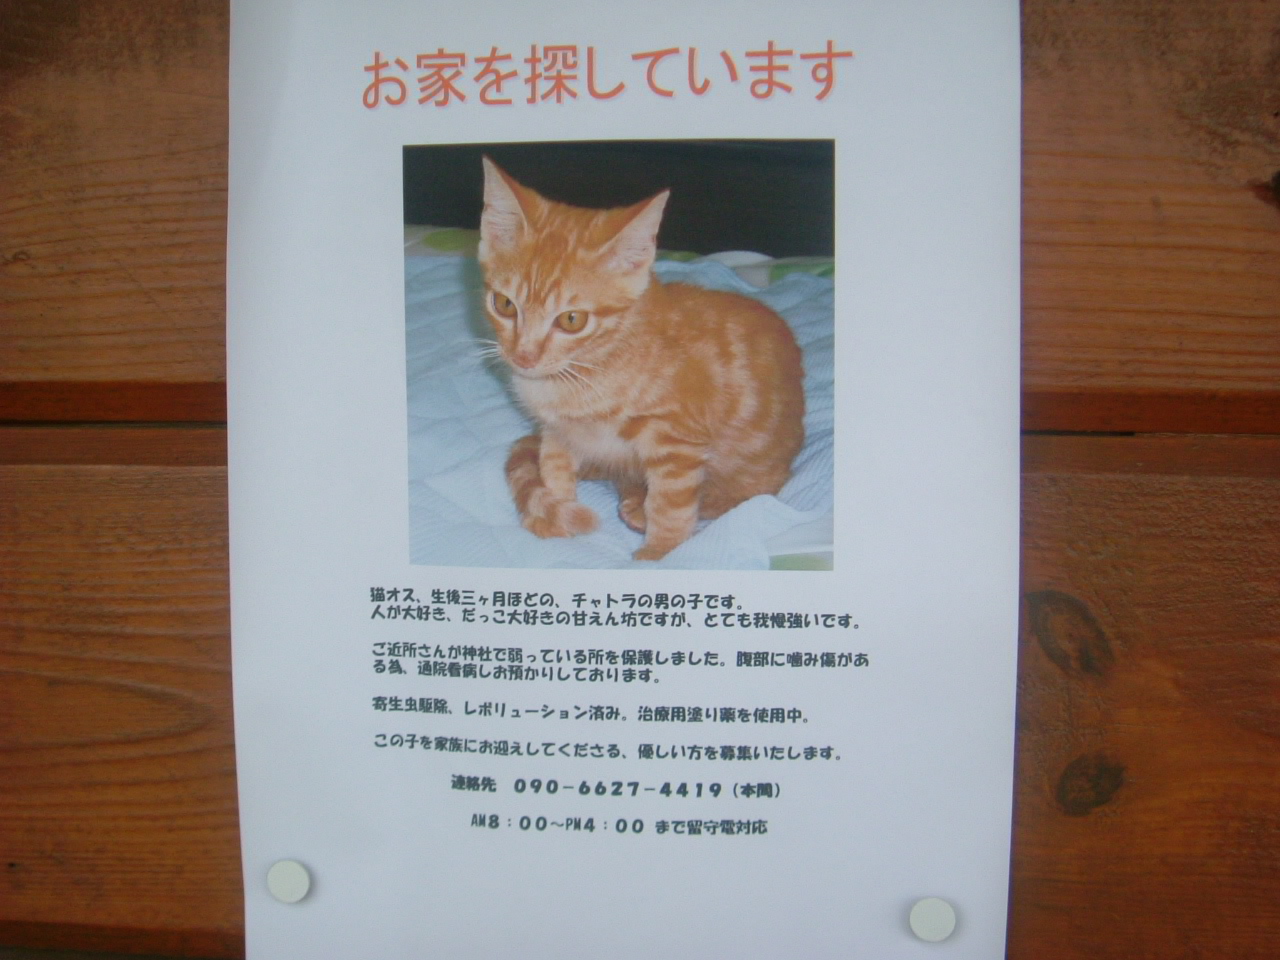 お家を探しています
猫オス、生後三ヶ月ほどの、チャトラの男の子です。
人が大好き、だっこ大好きの甘えん坊ですが、とても我慢強いです。
ご近所さんが神社で弱っている所を保護しました。腹部に噛み傷があ
る為、通院看病しお預かりしております。
寄生虫駆除、レボリューション済み。治療用塗り薬を使用中。
この子を家族にお迎えしてくださる、優しい方を募集いたします。
連絡先 090-6627-4419（本間）
AM8：00～PM4：00 まで留守電対応